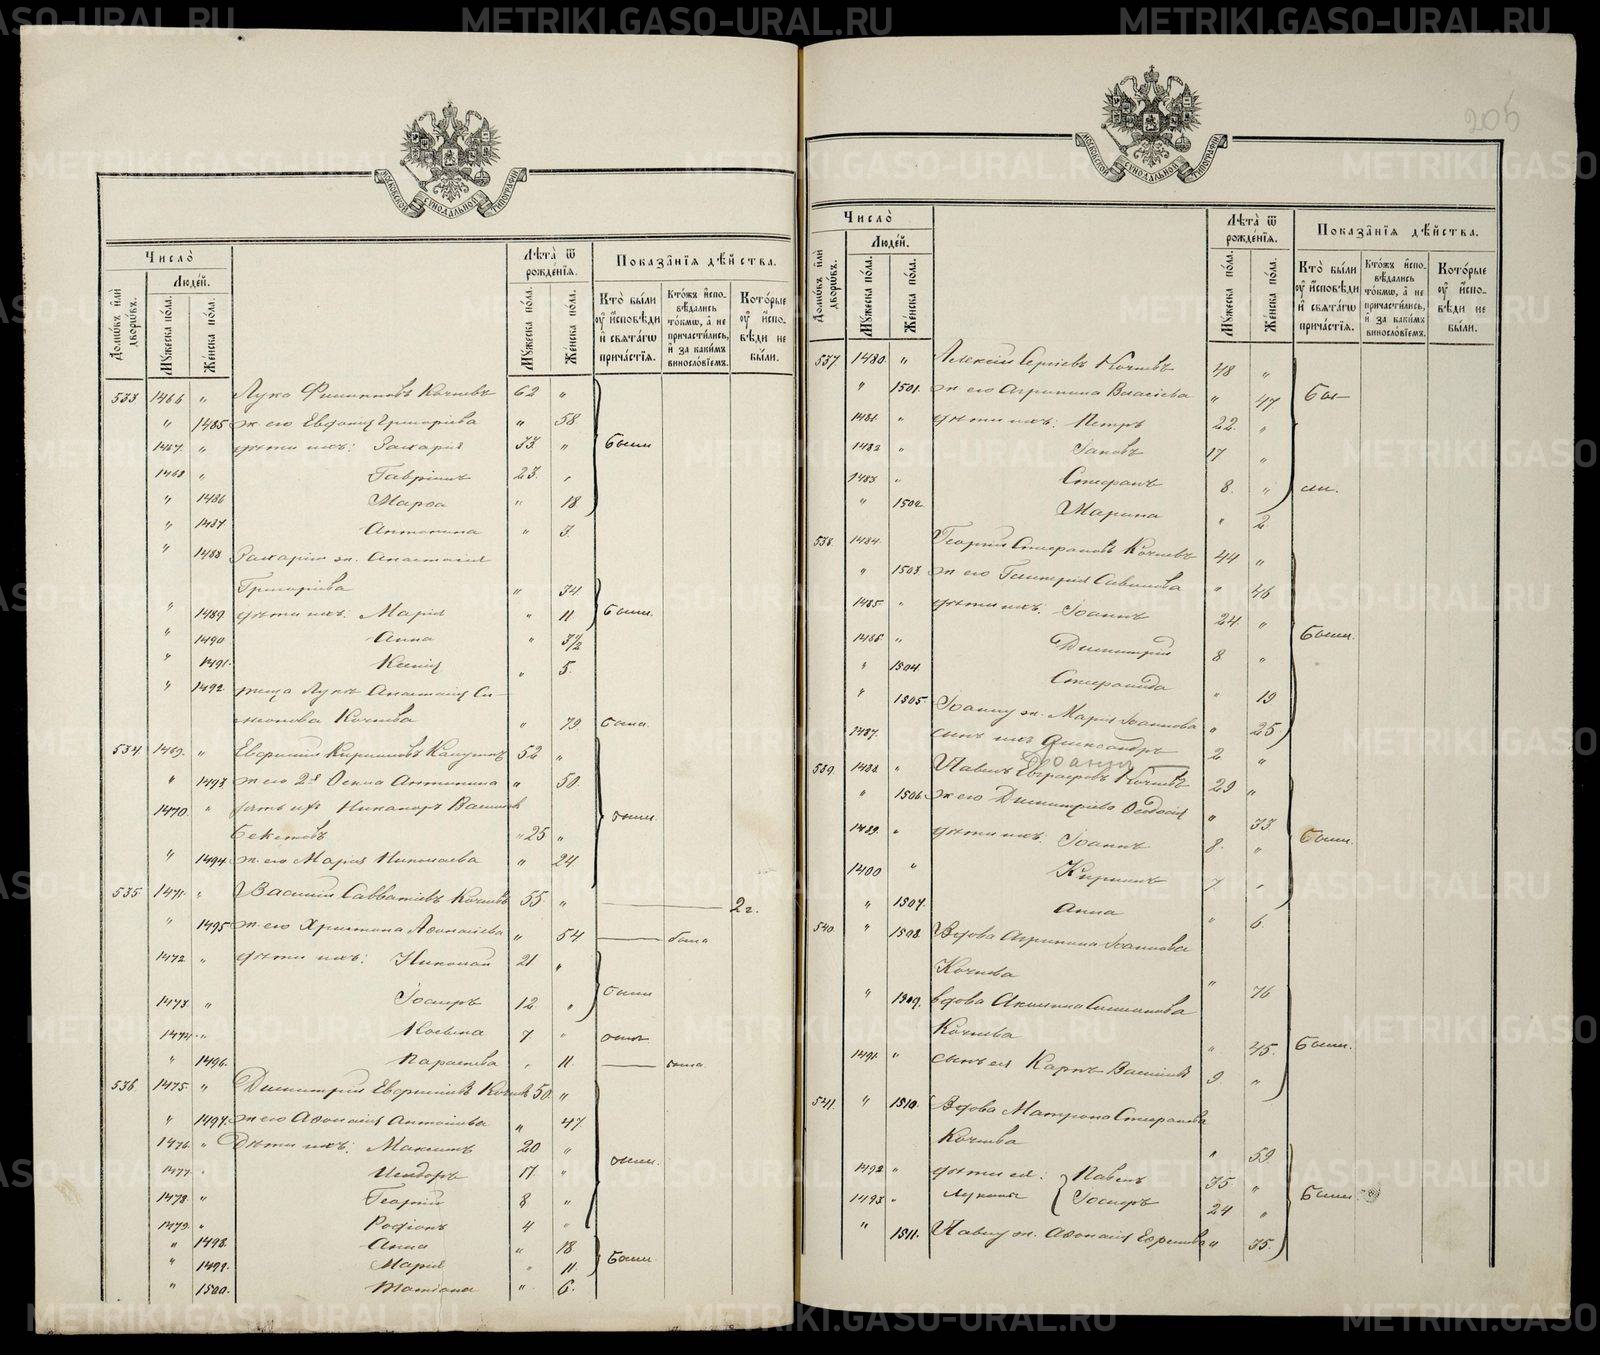 METRIKI.GASO-URAL.RU
205
МОСКОВСКОЙ СѴНОДАЛЬНОЙ ТИПОГРАФІИ
Число̀
Людей.
Домѡвъ и҆лѝ дворѡвъ.
Мꙋжеска по́ла.
Же́нска по́ла.
Лѣта̀ ѿ рожде́нїѧ.
Мꙋжеска по́ла.
Же́нска по́ла.
Показа̑нїѧ дѣ́йства.
Кто̀ бы́ли оу҆ и҆споⷡ҇ѣди и҆ свѧта́гѡ прича́стїѧ.
Кто́жъ и҆спо-вѣдались то́кмѡ, а҆ не причасти́лись, и҆ за каки́мъ винослові́емъ.
Кото́рые оу҆ и҆спо-вѣди не бы́ли.
533 1466 " Лука Филипповъ Кочневъ 62 "
" 1485 ж. его Евдокія Григорьева " 58
1467. " дѣти ихъ: Захарія 33 " были
1468 " Гавріилъ 23. "
" 1486 Марѳа " 18
" 1487 Антонина " 3.
" 1488 Захаріи ж. Анастасія
Григорьева " 34
" 1489. дѣти ихъ. Марія " 11 были.
" 1490 Анна " 3½
" 1491. Ксенія " 5.
" 1492. Луки Анастасія Си-
меонова Кочнева " 79. была.
534 1469. " Евфимій Кирилловъ 52 "
" 1493 ж. его 2я Антонина " 50.
1470. " зять ихъ Никаноръ Васильевъ были.
Бекетовъ " 25 "
" 1494. ж. его Марія Николаева " 24
535 1471. " Василій Савватіевъ Кочневъ 55 " 2 г.
" 1495 ж. его Христина Аѳонасіева " 54 была
1472 " дѣти ихъ: Николай 21 "
1473 " Іосифъ 12. " были
1474. " Косьма 7 "
" 1496. Параскева " 11. была
536. 1475. " Димитрій Евфиміевъ Кочневъ 50. "
" 1497. ж. его Аѳонасія Антонова " 47
1476. " Дѣти ихъ: Максимъ 20 "
1477. " Исидоръ 17. " были.
1478. " Георгій 8 "
1479. " Родіонъ 4 "
" 1498. Анна " 18
" 1499. Марія " 11. были.
" 1500. Татіана " 6.
Число̀
Людей.
Домѡвъ и҆лѝ дворѡвъ.
Мꙋжеска по́ла.
Же́нска по́ла.
Лѣта̀ ѿ рожде́нїѧ.
Мꙋжеска по́ла.
Же́нска по́ла.
Показа̑нїѧ дѣ́йства.
Кто̀ бы́ли оу҆ и҆споⷡ҇ѣди и҆ свѧта́гѡ прича́стїѧ.
Кто́жъ и҆спо-вѣдались то́кмѡ, а҆ не причасти́лись, и҆ за каки́мъ винослові́емъ.
Кото́рые оу҆ и҆спо-вѣди не бы́ли.
537 1480. " Алексій Сергіевъ Кочневъ 48 "
" 1501. ж. его Агрипина Власіева " 47 Бы-
1481. " дѣти ихъ: Петръ 22. "
1482 " Іаковъ 17 "
1483 " Стефанъ 8. " ли.
" 1502. Марина " 2
538. 1484. Георгій Стефановъ Кочневъ 44 "
" 1503. ж. его Гликерія Савинова " 46
1485 " дѣти ихъ. Іоаннъ 24. "
1486 " Димитрій 8 " были.
" 1504. Стефанида " 19
" 1505. Іоанну ж. Марія Іоаннова " 25
1487. сынъ ихъ Александръ 2 "
539. 1488. " Павелъ Евграфовъ Кочневъ 29 "
" 1506. ж. его Димитріева Ѳеодосія " 33.
1489. " дѣти ихъ: Іоаннъ 8. " были.
1400 " Кириллъ 7 "
" 1507. Анна " 6.
540. " 1508. Вдова Агрипина Іоаннова
Кочнева " 76
" 1509. вдова Акилина Симеонова
Кочнева " 45. были.
1491. " сынъ ея Карпъ Васильевъ 9 "
541. " 1510. Вдова Матрона Стефанова
Кочнева " 59.
1492 " дѣти ея: Павелъ 35. "
1493 " Лукины Іосифъ 24 " были
" 1511. Павлу ж. Аѳонасія Ефимова " 35.